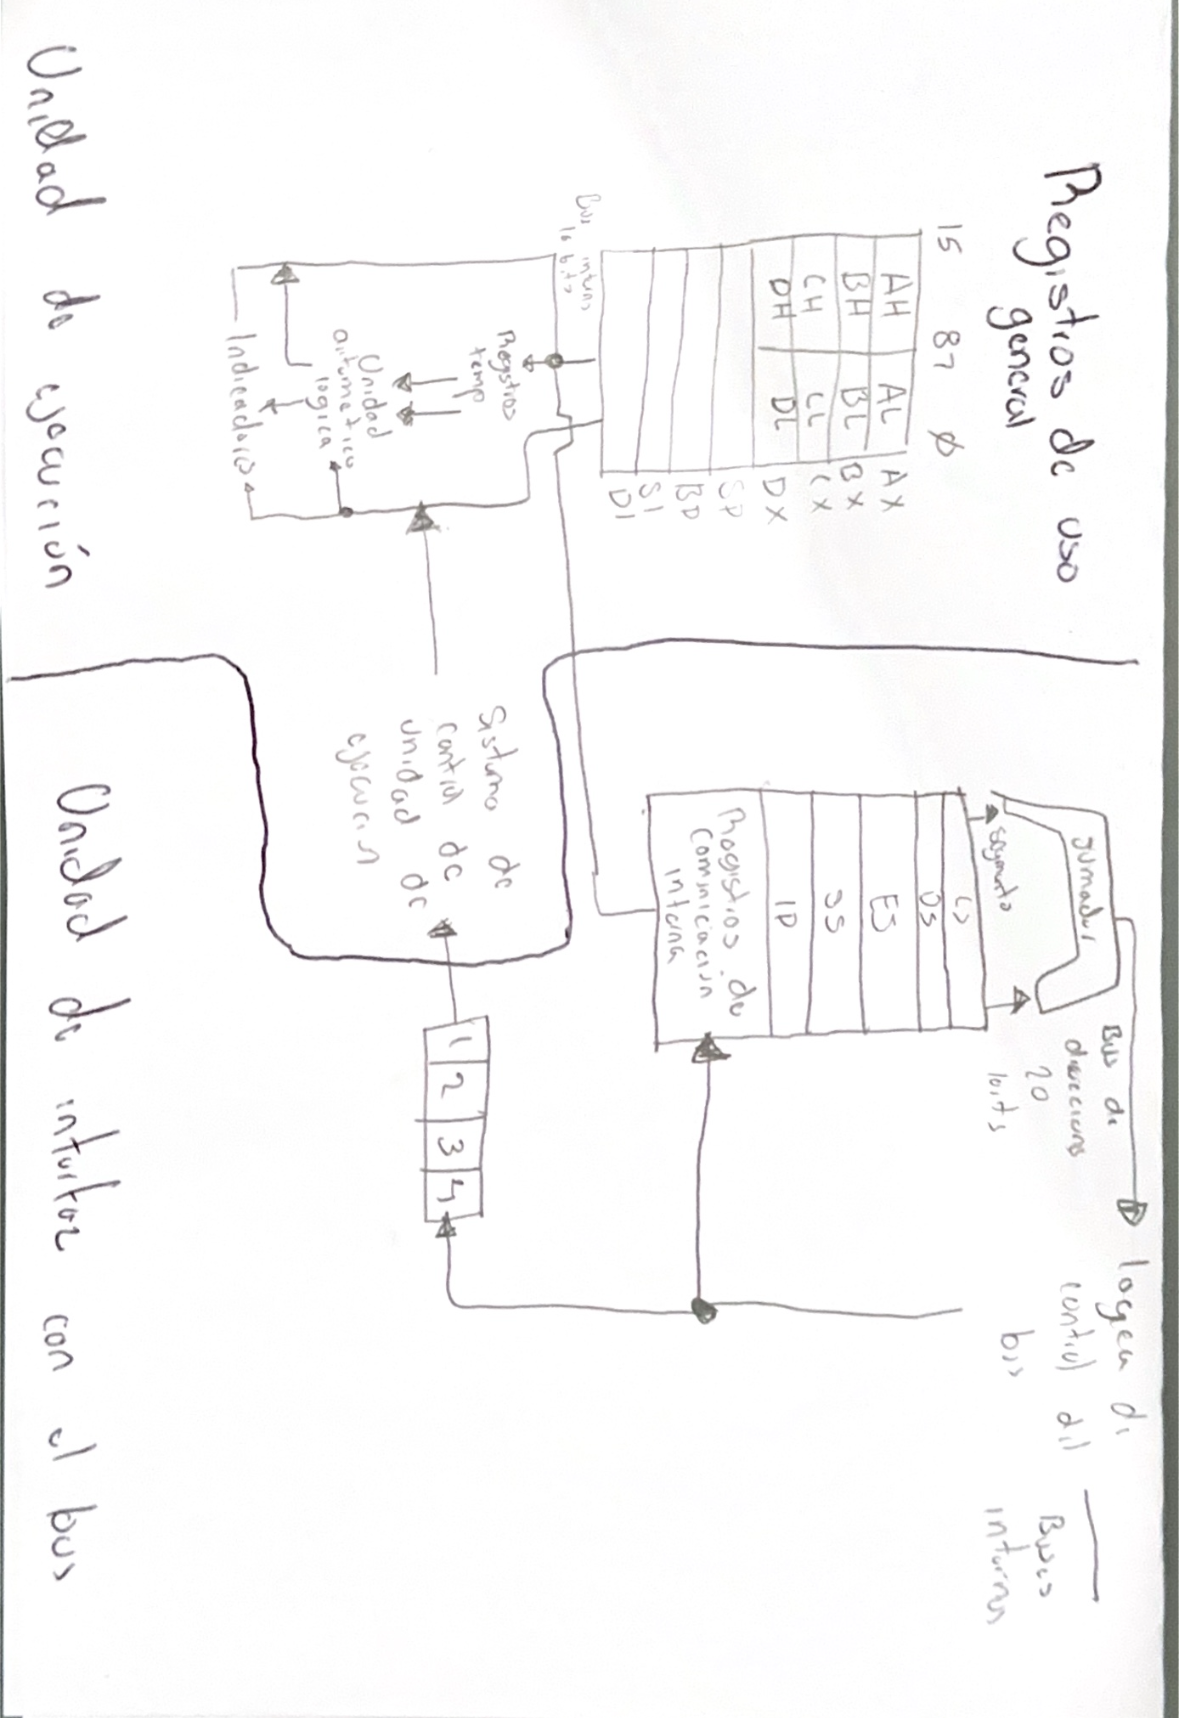 Registros de uso
general
15 87 0
AH AL AX
BH BL BX
CH CL CX
DH DL DX
SP
BP
SI
DI
Bus interno
16 bits
Registros
temp
Unidad
aritmetico
logica
Indicadores
Sistema de
control de
unidad de
ejecucin
Unidad de ejecución
sumador
segmento
CS
DS
ES
SS
IP
Registros de
comunicación
interna
Bus de
direcciones
20
bits
logica de
control del
bus
Buses
internos
1 2 3 4
Unidad de interfaz con el bus